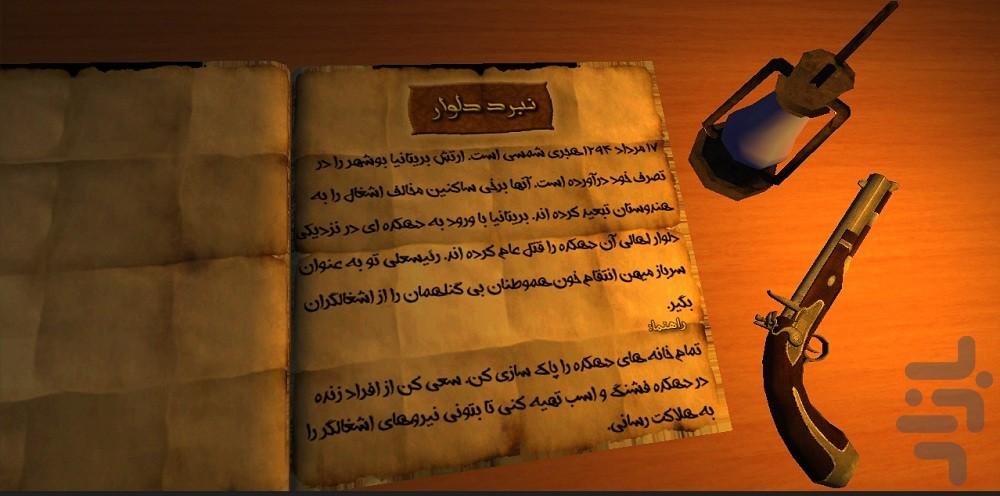 نبرد دلوار
۱۷ مرداد ۱۲۹۴ هجری شمسی است. ارتش بریتانیا بوشهر را در
تصرف خود درآورده است. آنها برخی ساکنین مخالف اشغال را به
هندوستان تبعید کرده اند. بریتانیا با ورود به دهکده ای در نزدیکی
دلوار اهالی آن دهکده را قتل عام کرده اند. رئیسعلی تو به عنوان
سرباز میهن انتقام خون هموطنان بی گناهمان را از اشغالگران
بگیر.
راهنما:
تمام خانه های دهکده را پاک سازی کن. سعی کن از افراد زنده
در دهکده فشنگ و اسب تهیه کنی تا بتونی نیروهای اشغالگر را
به هلاکت رسانی.
بازار